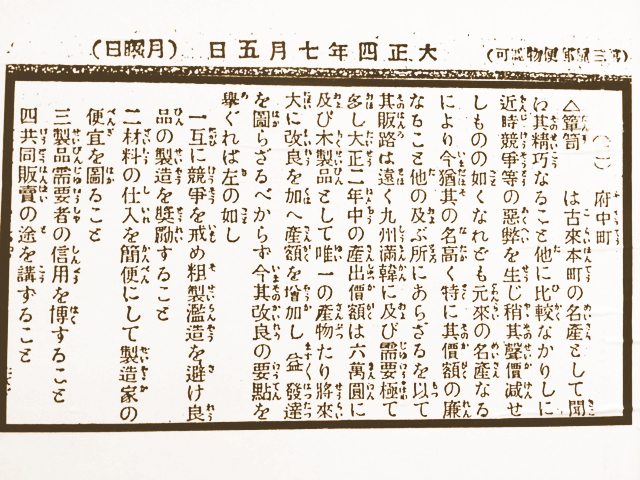 大正四年七月五日　(月曜日)
(第三種郵便物認可)
(二)　府中町
△簞笥　は古來本町の名產として聞
わ其精巧なること他に比較なかりしに
近時競爭等の惡弊を生じ稍其聲價減せ
しものの如くなれども元來の名產なる
により今猶其の名高く特に其價額の廉
なること他の及ぶ所にあらざるを以て
其販路は遠く九州滿韓に及び需要極て
多し大正二年中の產出價額は六萬圓に
及び木製品として唯一の產物たり將來
大に改良を加へ產額を增加し益發達
を圖らざるべからず今其改良の要點を
擧ぐれば左の如し
一互に競爭を戒め粗製濫造を避け良
品の製造を奬勵すること
二材料の仕入を簡便にして製造家の
便宜を圖ること
三製品需要者の信用を博すること
四共同販賣の途を講ずること